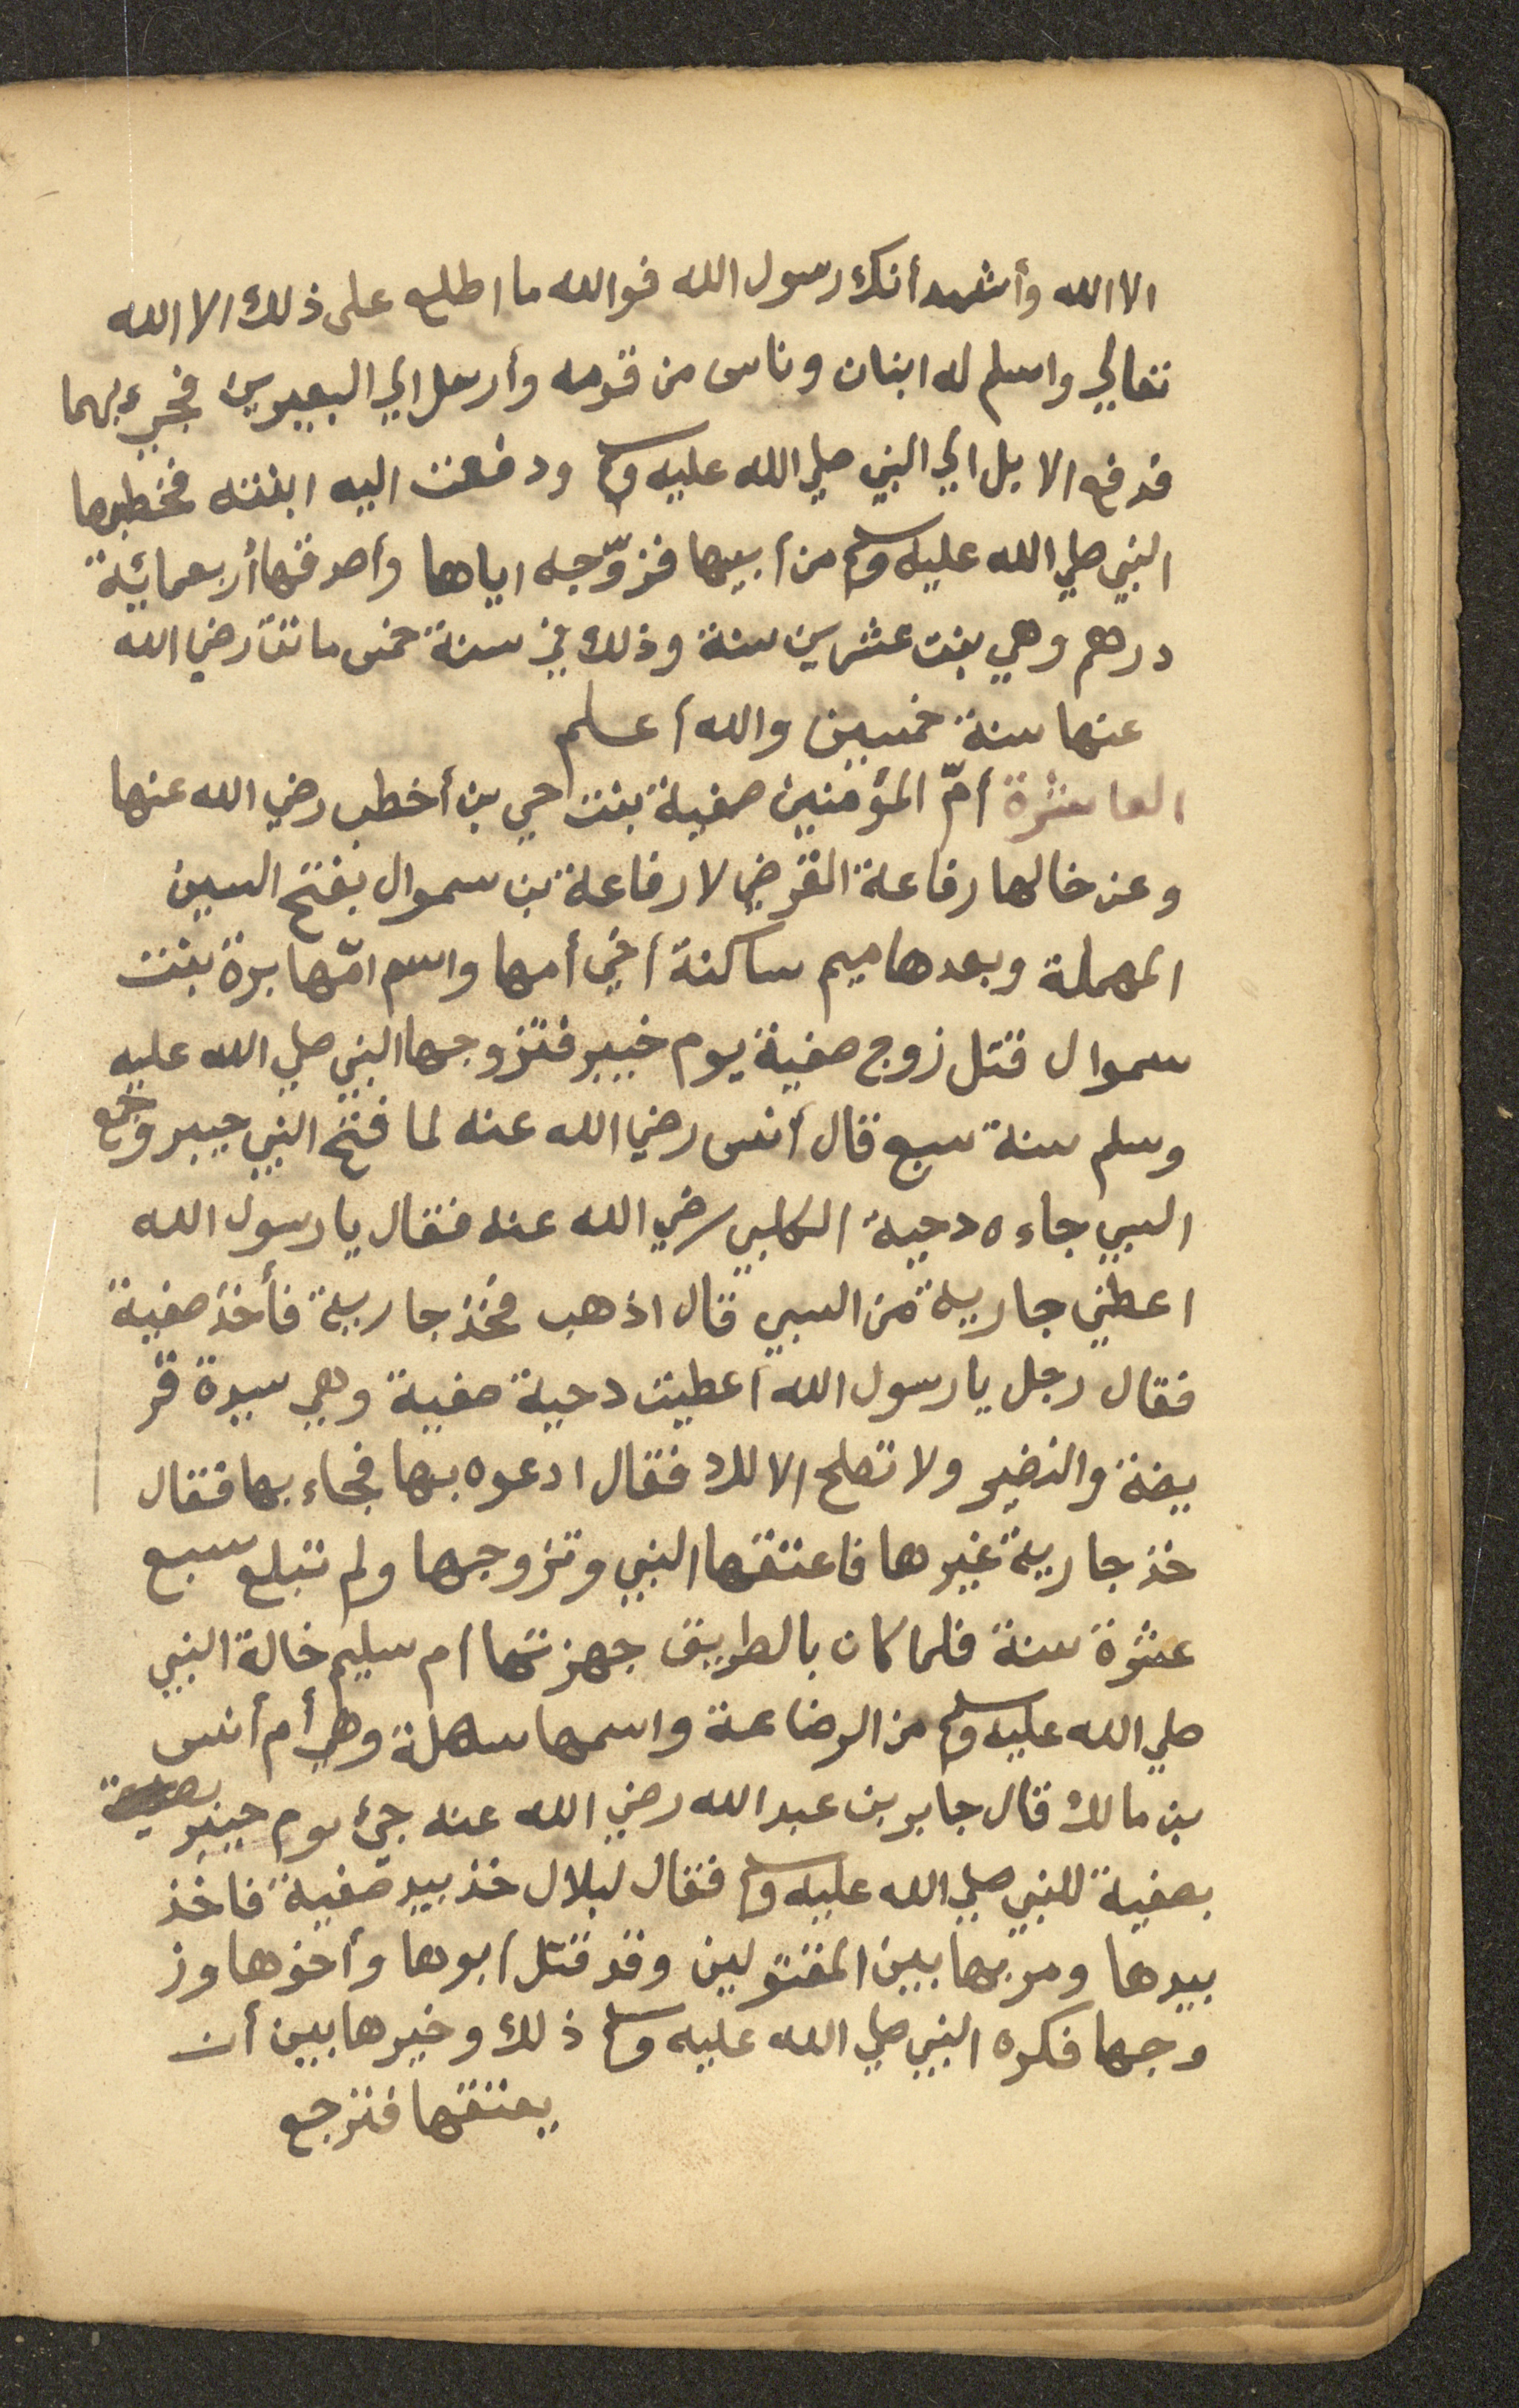 الا الله وأشهد أنك رسول الله فوالله ما اطلع على ذلك الا الله
تعالي واسلم له ابنان وناس من قومه وأرسل الي البعيرين فجيء بهما
فدفع الابل الي النبي صلي الله عليه وسلم ودفعت اليه ابنته فخطبها
النبي صلي الله عليه وسلم من أبيها فزوّجه اياها وأصدقها أربعمائة
درهم وهي بنت عشرين سنة وذلك في سنة خمس ماتت رضي الله
عنها سنة خمسين والله أعلم
العاشرة أمّ المؤمنين صفية بنت حي بن أخطب رضي الله عنها
وعن خالها رفاعة القرضي لا رفاعة بن سموال بفتح السين
المهملة وبعدها ميم ساكنة أخي أمها واسم امّها برة بنت
سموال قتل زوج صفية يوم خيبر فتزوجها النبي صلي الله عليه
وسلم سنة سبع قال أنس رضي الله عنه لما فتح النبي خيبر وجمع
السبي جاءه دحية الكلبي رضي الله عنه فقال يا رسول الله
اعطني جارية من السبي قال اذهب فخذ جارية فأخذ صفية
فقال رجل يا رسول الله أعطيت دحية صفية وهي سيدة قر
يضة والنضير ولا تصلح الا لك فقال ادعوه بها فجاء بها فقال
خذ جارية غيرها فاعتقها النبي وتزوجها ولم تبلغ سبع
عشرة سنة فلما كان بالطريق جهزتها ام سليم خالة النبي
صلي الله عليه وسلم من الرضاعة واسمها سهلة وهي أم أنس
بن مالك قال جابر بن عبد الله رضي الله عنه جئ يوم خيبر
بصفية للنبي صلي الله عليه وسلم فقال لبلال خذ بيد صفية فاخذ
بيدها ومر بها بين المقتولين وقد قتل ابوها وأخوها وز
وجها فكره النبي صلي الله عليه وسلم ذلك وخيرها بين أن
يعتقها فترجع